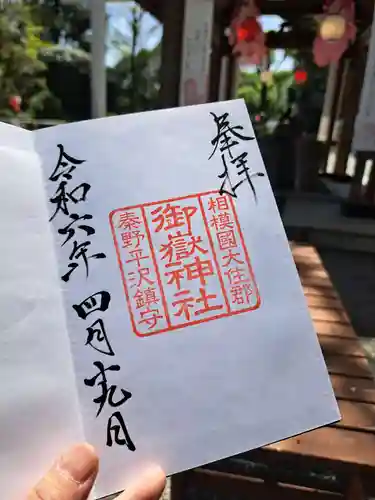 奉拝
相模國大住郡
御嶽神社
秦野平沢鎮守
令和六年四月廿九日